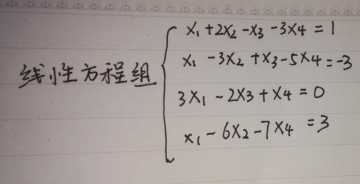 线性方程组
x₁+2x₂-x₃-3x₄=1
x₁-3x₂+x₃-5x₄=-3
3x₁-2x₃+x₄=0
x₁-6x₂-7x₄=3